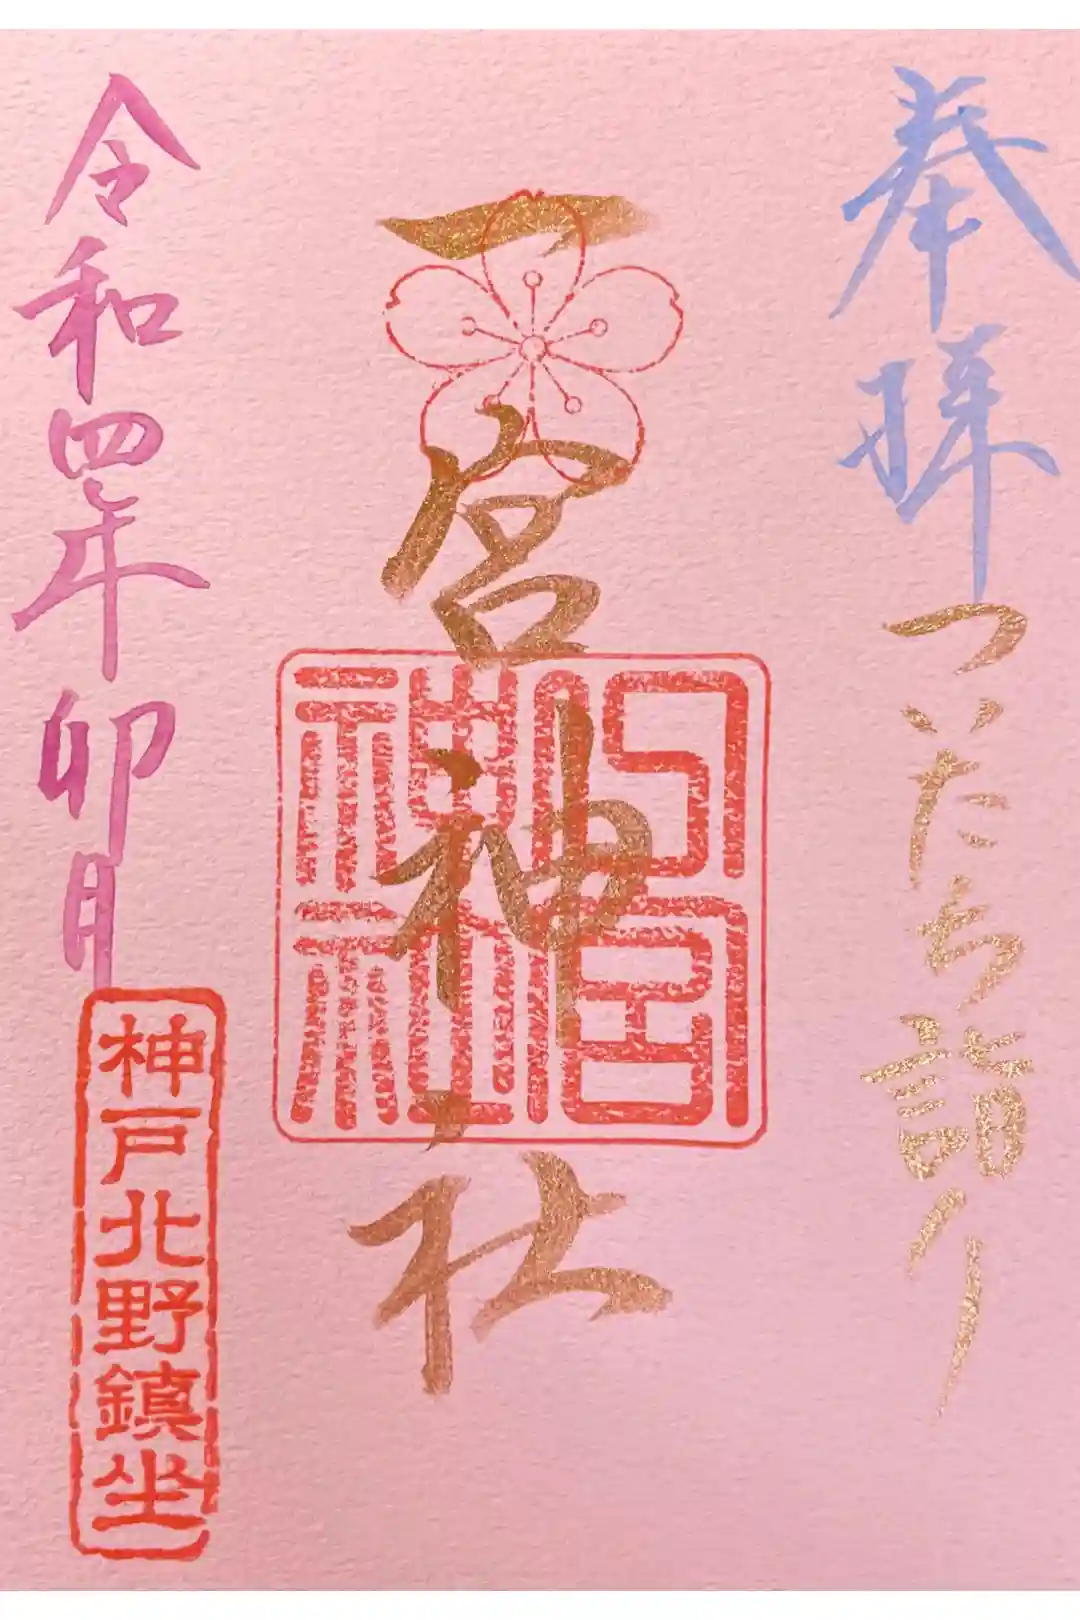 奉拝
ついたち詣り
一宮神社
一宮神社
令和四年卯月
神戸北野鎮坐